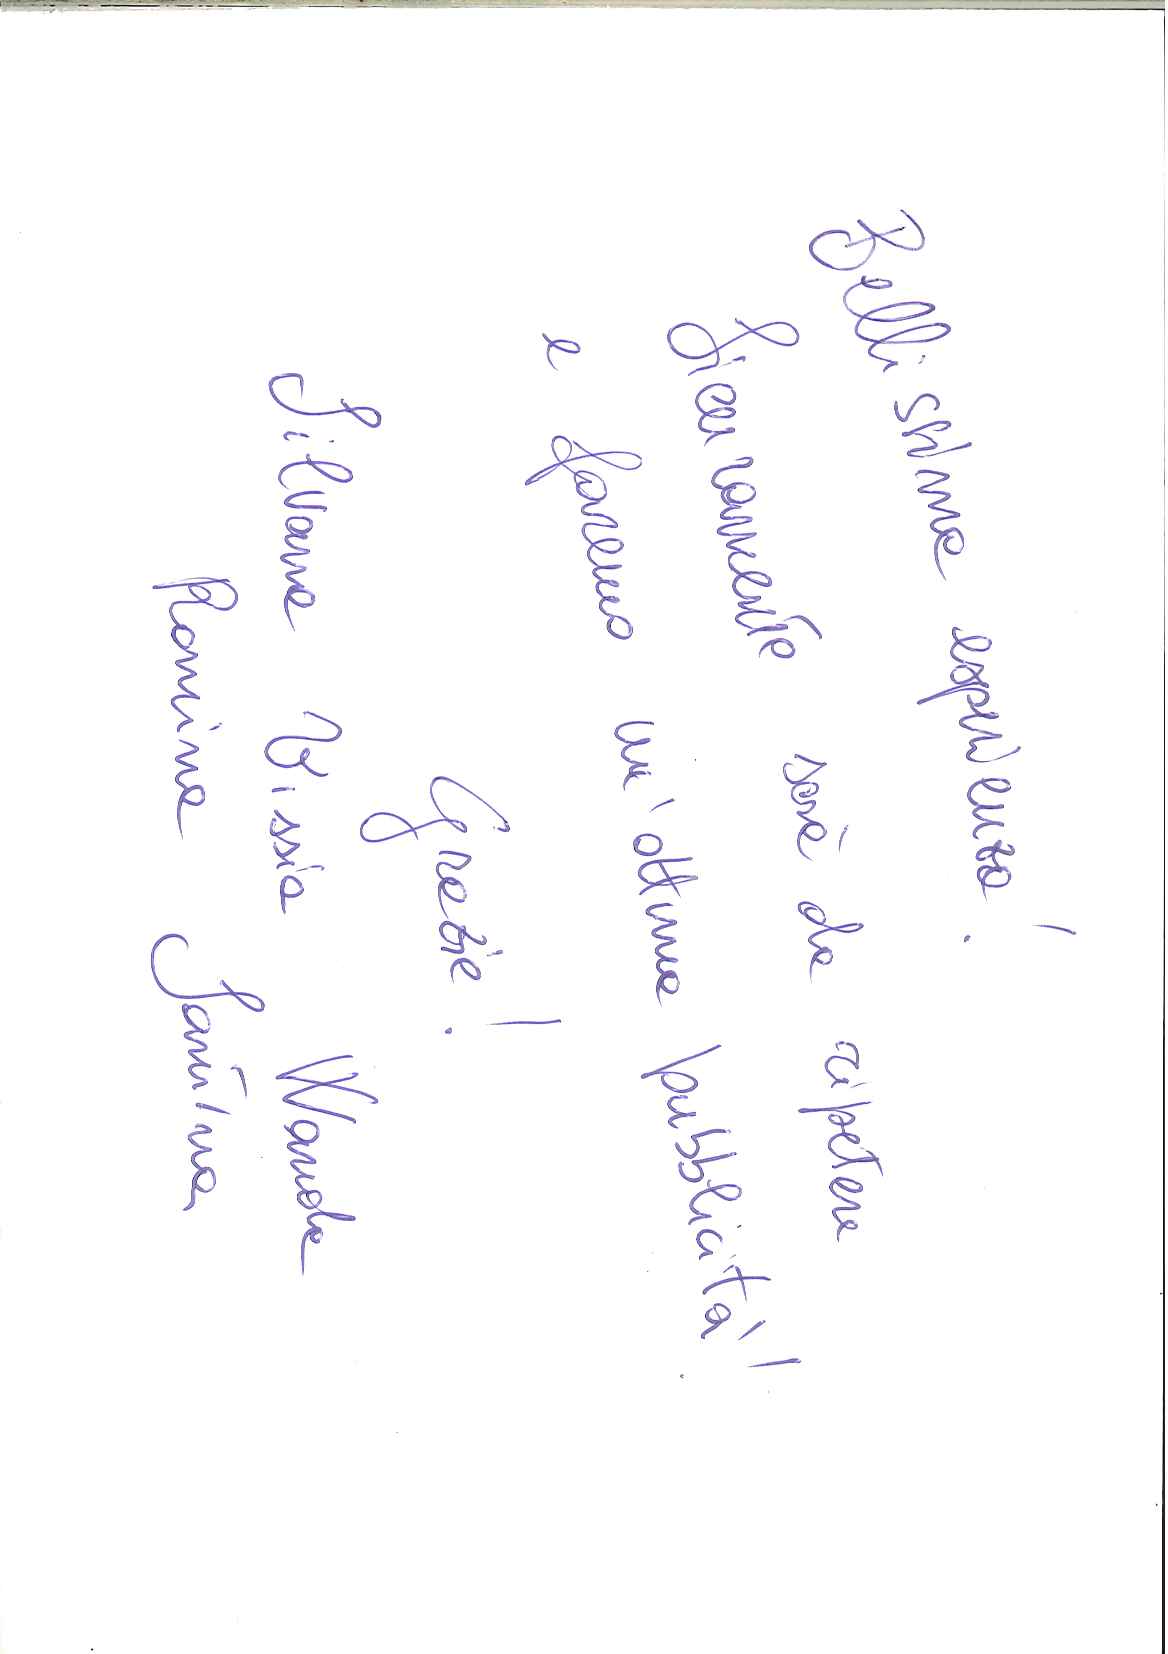 Bellissima esperienza!
Sicuramente sarà da ripetere
e faremo un'ottima pubblicità!
Grazie!
Silvana Vissia Wanda
Romina Santina